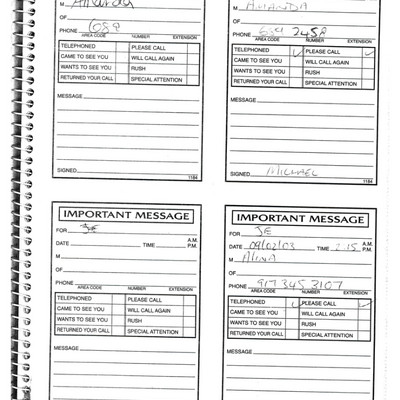 M Amanda
OF
PHONE 689
AREA CODE NUMBER EXTENSION
TELEPHONED PLEASE CALL
CAME TO SEE YOU WILL CALL AGAIN
WANTS TO SEE YOU RUSH
RETURNED YOUR CALL SPECIAL ATTENTION
MESSAGE
SIGNED
1184
M AMANDA
OF
PHONE 689 2458
AREA CODE NUMBER EXTENSION
TELEPHONED ✓ PLEASE CALL ✓
CAME TO SEE YOU WILL CALL AGAIN
WANTS TO SEE YOU RUSH
RETURNED YOUR CALL SPECIAL ATTENTION
MESSAGE
SIGNED MICHAEL
1184
IMPORTANT MESSAGE
FOR JE
DATE TIME A.M. P.M.
M
OF
PHONE
AREA CODE NUMBER EXTENSION
TELEPHONED PLEASE CALL
CAME TO SEE YOU WILL CALL AGAIN
WANTS TO SEE YOU RUSH
RETURNED YOUR CALL SPECIAL ATTENTION
MESSAGE
IMPORTANT MESSAGE
FOR JE
DATE 09/02/03 TIME 2:15 A.M. P.M.
M Alina
OF
PHONE 917 345 3107
AREA CODE NUMBER EXTENSION
TELEPHONED ✓ PLEASE CALL ✓
CAME TO SEE YOU WILL CALL AGAIN
WANTS TO SEE YOU RUSH
RETURNED YOUR CALL SPECIAL ATTENTION
MESSAGE